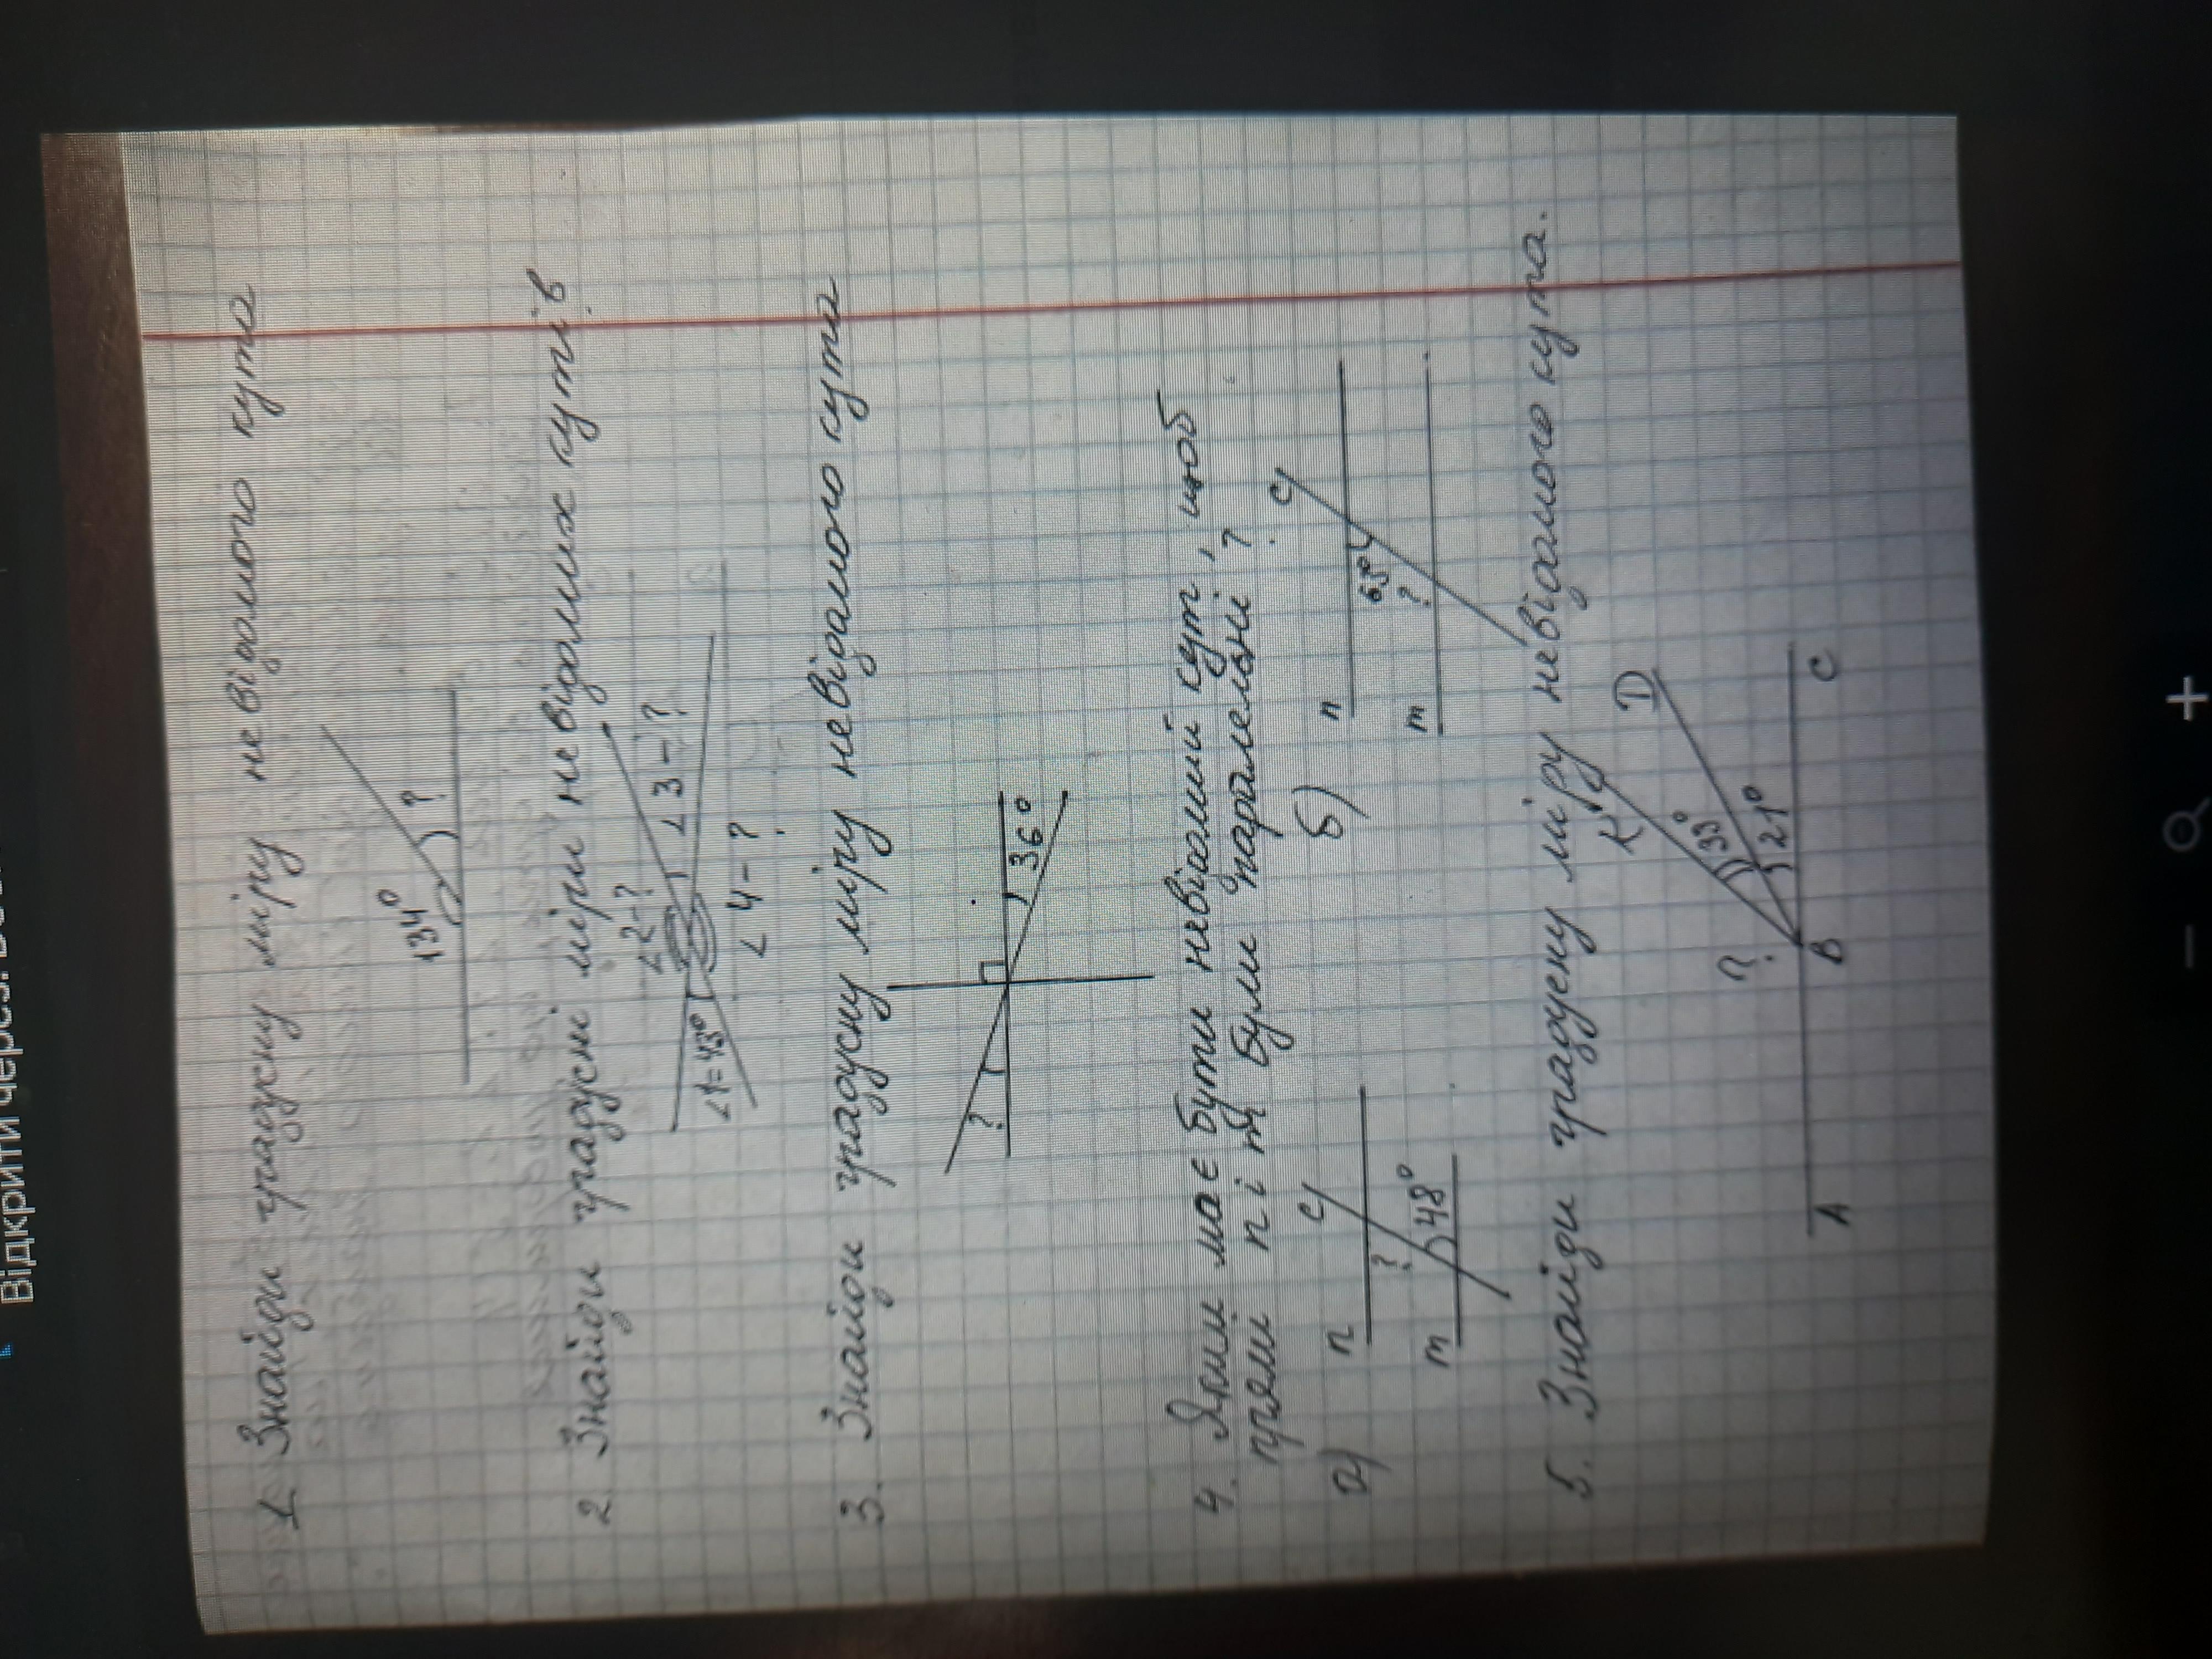 Відкрити через: Do
1. Знайди градусну міру невідомого кута
134°
?
2. Знайди градусні міри невідомих кутів
∠2-?
∠1=43°
∠3-?
∠4-?
3. Знайди градусну міру невідомого кута
?
36°
4. Яким має бути невідомий кут, щоб
прямі n і m були паралельні?
а)
n
c
?
m
48°
б)
n
c
65°
?
m
5. Знайди градусну міру невідомого кута.
K
D
?
33°
21°
A
B
C